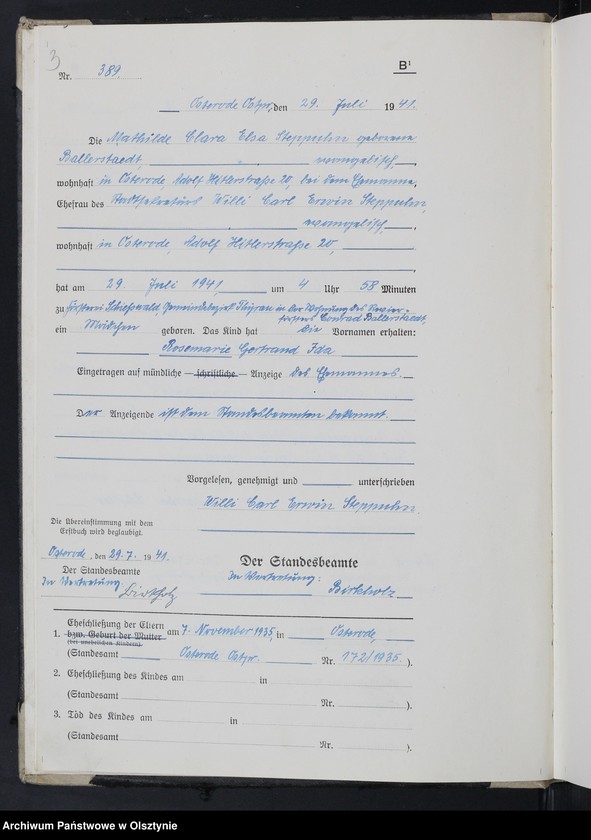 3
B¹
Nr. 389.
Osterode Ostpr., den 29. Juli 1941.
Die Mathilde Clara Elsa Steppuhn geborene
Ballerstaedt, evangelisch,
wohnhaft in Osterode, Adolf Hitlerstraße 20, bei dem Ehemanne,
Ehefrau des Stadtsekretärs Willi Carl Erwin Steppuhn,
evangelisch,
wohnhaft in Osterode, Adolf Hitlerstraße 20,
hat am 29. Juli 1941 um 4 Uhr 58 Minuten
zu Försterei Schießwald Gemeindebezirk in der Wohnung des Revier-
försters Conrad Ballerstaedt,
ein Mädchen geboren. Das Kind hat die Vornamen erhalten:
Rosemarie Gertraud Ida
Eingetragen auf mündliche – schriftliche – Anzeige des Ehemannes.
Der Anzeigende ist dem Standesbeamten bekannt.
Vorgelesen, genehmigt und unterschrieben
Willi Carl Erwin Steppuhn.
Die Übereinstimmung mit dem
Erstbuch wird beglaubigt.
Osterode, den 29.7. 1941.
Der Standesbeamte
In Vertretung
Birkholz
Der Standesbeamte
In Vertretung:
Birkholz
Eheschließung der Eltern
1. bzw. Geburt der Mutter am 7. November 1935, in Osterode
(bei unehelichen Kindern).
(Standesamt Osterode Ostpr. Nr. 172/1935. ).
2. Eheschließung des Kindes am in
(Standesamt Nr. ).
3. Tod des Kindes am in
(Standesamt Nr. ).
Archiwum Państwowe w Olsztynie